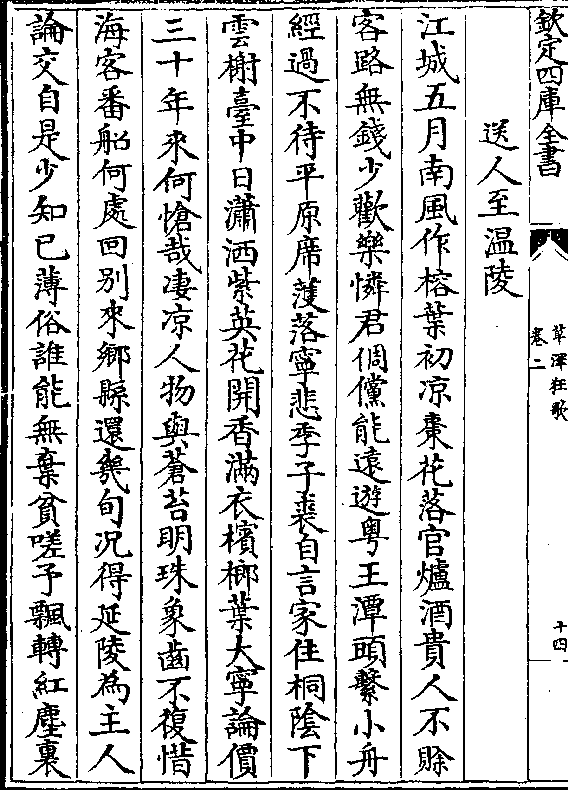 欽定四庫全書
草澤狂歌
卷二
十四
送人至温陵
江城五月南風作榕葉初凉棗花落官爐酒貴人不賒
客路無錢少歡樂憐君倜儻能遠遊粤王潭頭繫小舟
經過不待平原席䕶落寧悲季子裘自言家住桐陰下
雲榭臺中日瀟洒紫英花開香滿衣檳榔葉大寧論價
三十年來何愴哉凄凉人物與蒼苔明珠象齒不復惜
海客番船何處回别來鄉縣還幾旬况得延陵為主人
論交自是少知已薄俗誰能無棄貧嗟予飄轉紅塵裏